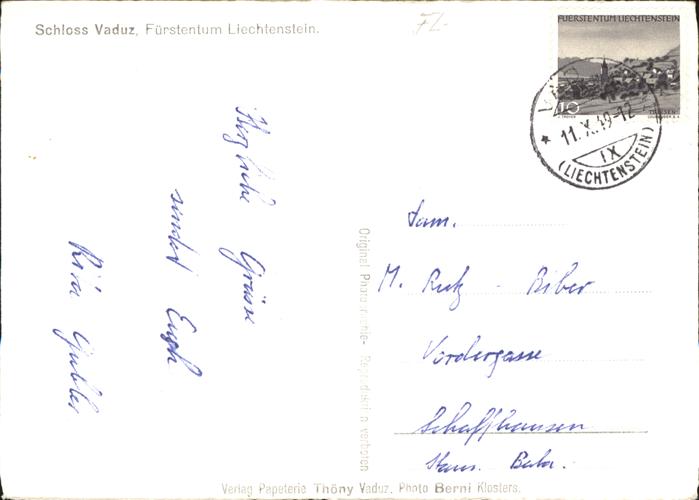 Schloss Vaduz, Fürstentum Liechtenstein.
FL-
FUERSTENTUM LIECHTENSTEIN
10
TRIESEN
11.X.49-12
IX
(LIECHTENSTEIN)
Herzliche Grüsse
sendet Euch
Gubler
Fam.
M. Rutz - Biber
Vordergasse
Schaffhausen
Original Photographie- Reproduktion verboten
Verlag Papeterie Thöny Vaduz. Photo Berni Klosters.